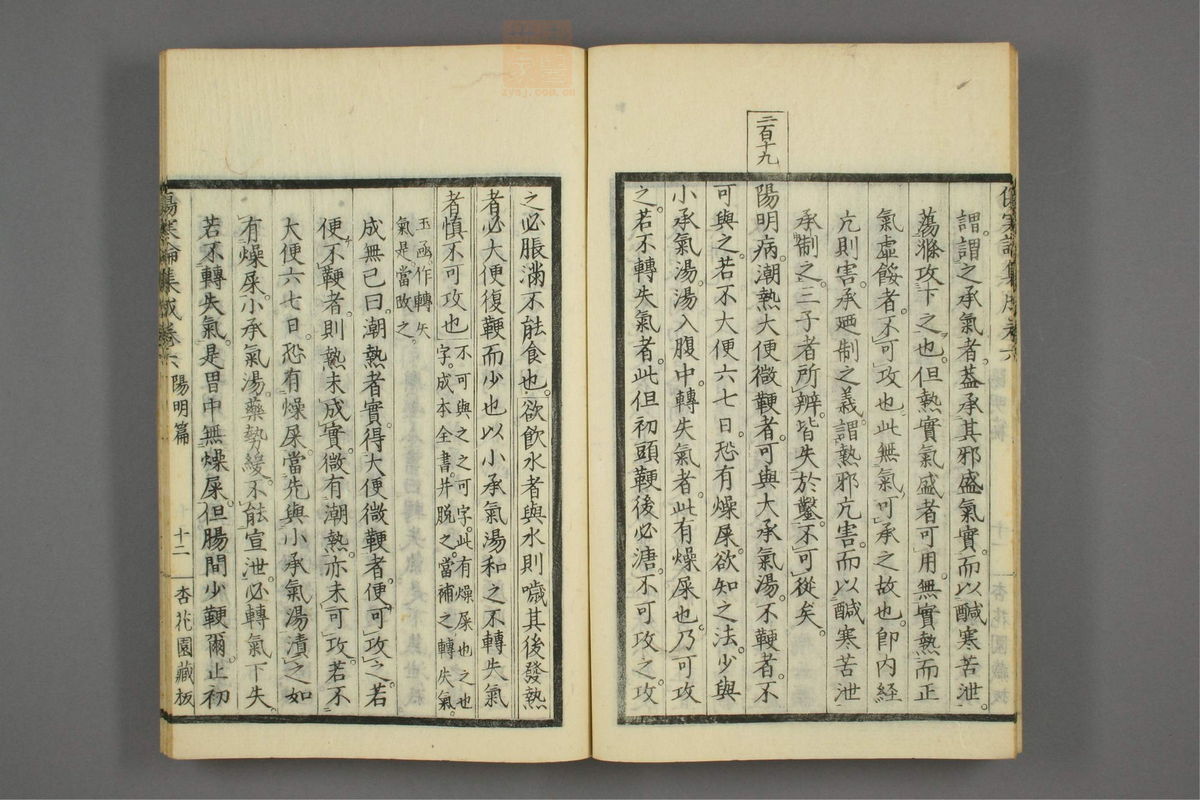 二百十九
謂謂之承氣者蓋承其邪盛氣實而以鹹寒苦泄
蕩滌攻下之也但熱實氣盛者可用無實熱而正
氣虛餒者不可攻也此無氣可承之故也即内經
亢則害承廼制之義謂熱邪亢害而以鹹寒苦泄
承制之三子者所辨皆失於鑿不可從矣
陽明病潮熱大便微鞕者可與大承氣湯不鞕者不
可與之若不大便六七日恐有燥屎欲知之法少與
小承氣湯湯入腹中轉失氣者此有燥屎也乃可攻
之若不轉失氣者此但初頭鞕後必溏不可攻之攻
之必脹滿不能食也欲飲水者與水則噦其後發熱
者必大便復鞕而少也以小承氣湯和之不轉失氣
者慎不可攻也不可與之之可字此有燥屎也之也
字成本全書并脫之當補之轉失氣
玉函作轉矢
氣是當改之
成無已曰潮熱者實得大便微鞕者便可攻之若
便不鞕者則熱未成實微有潮熱亦未可攻若不
大便六七日恐有燥屎當先與小承氣湯漬之如
有燥屎小承氣湯藥勢緩不能宣泄必轉氣下失
若不轉失氣是胃中無燥屎但腸間少鞕爾止初
傷寒論集成卷六 陽明篇 十二 杏花園藏板